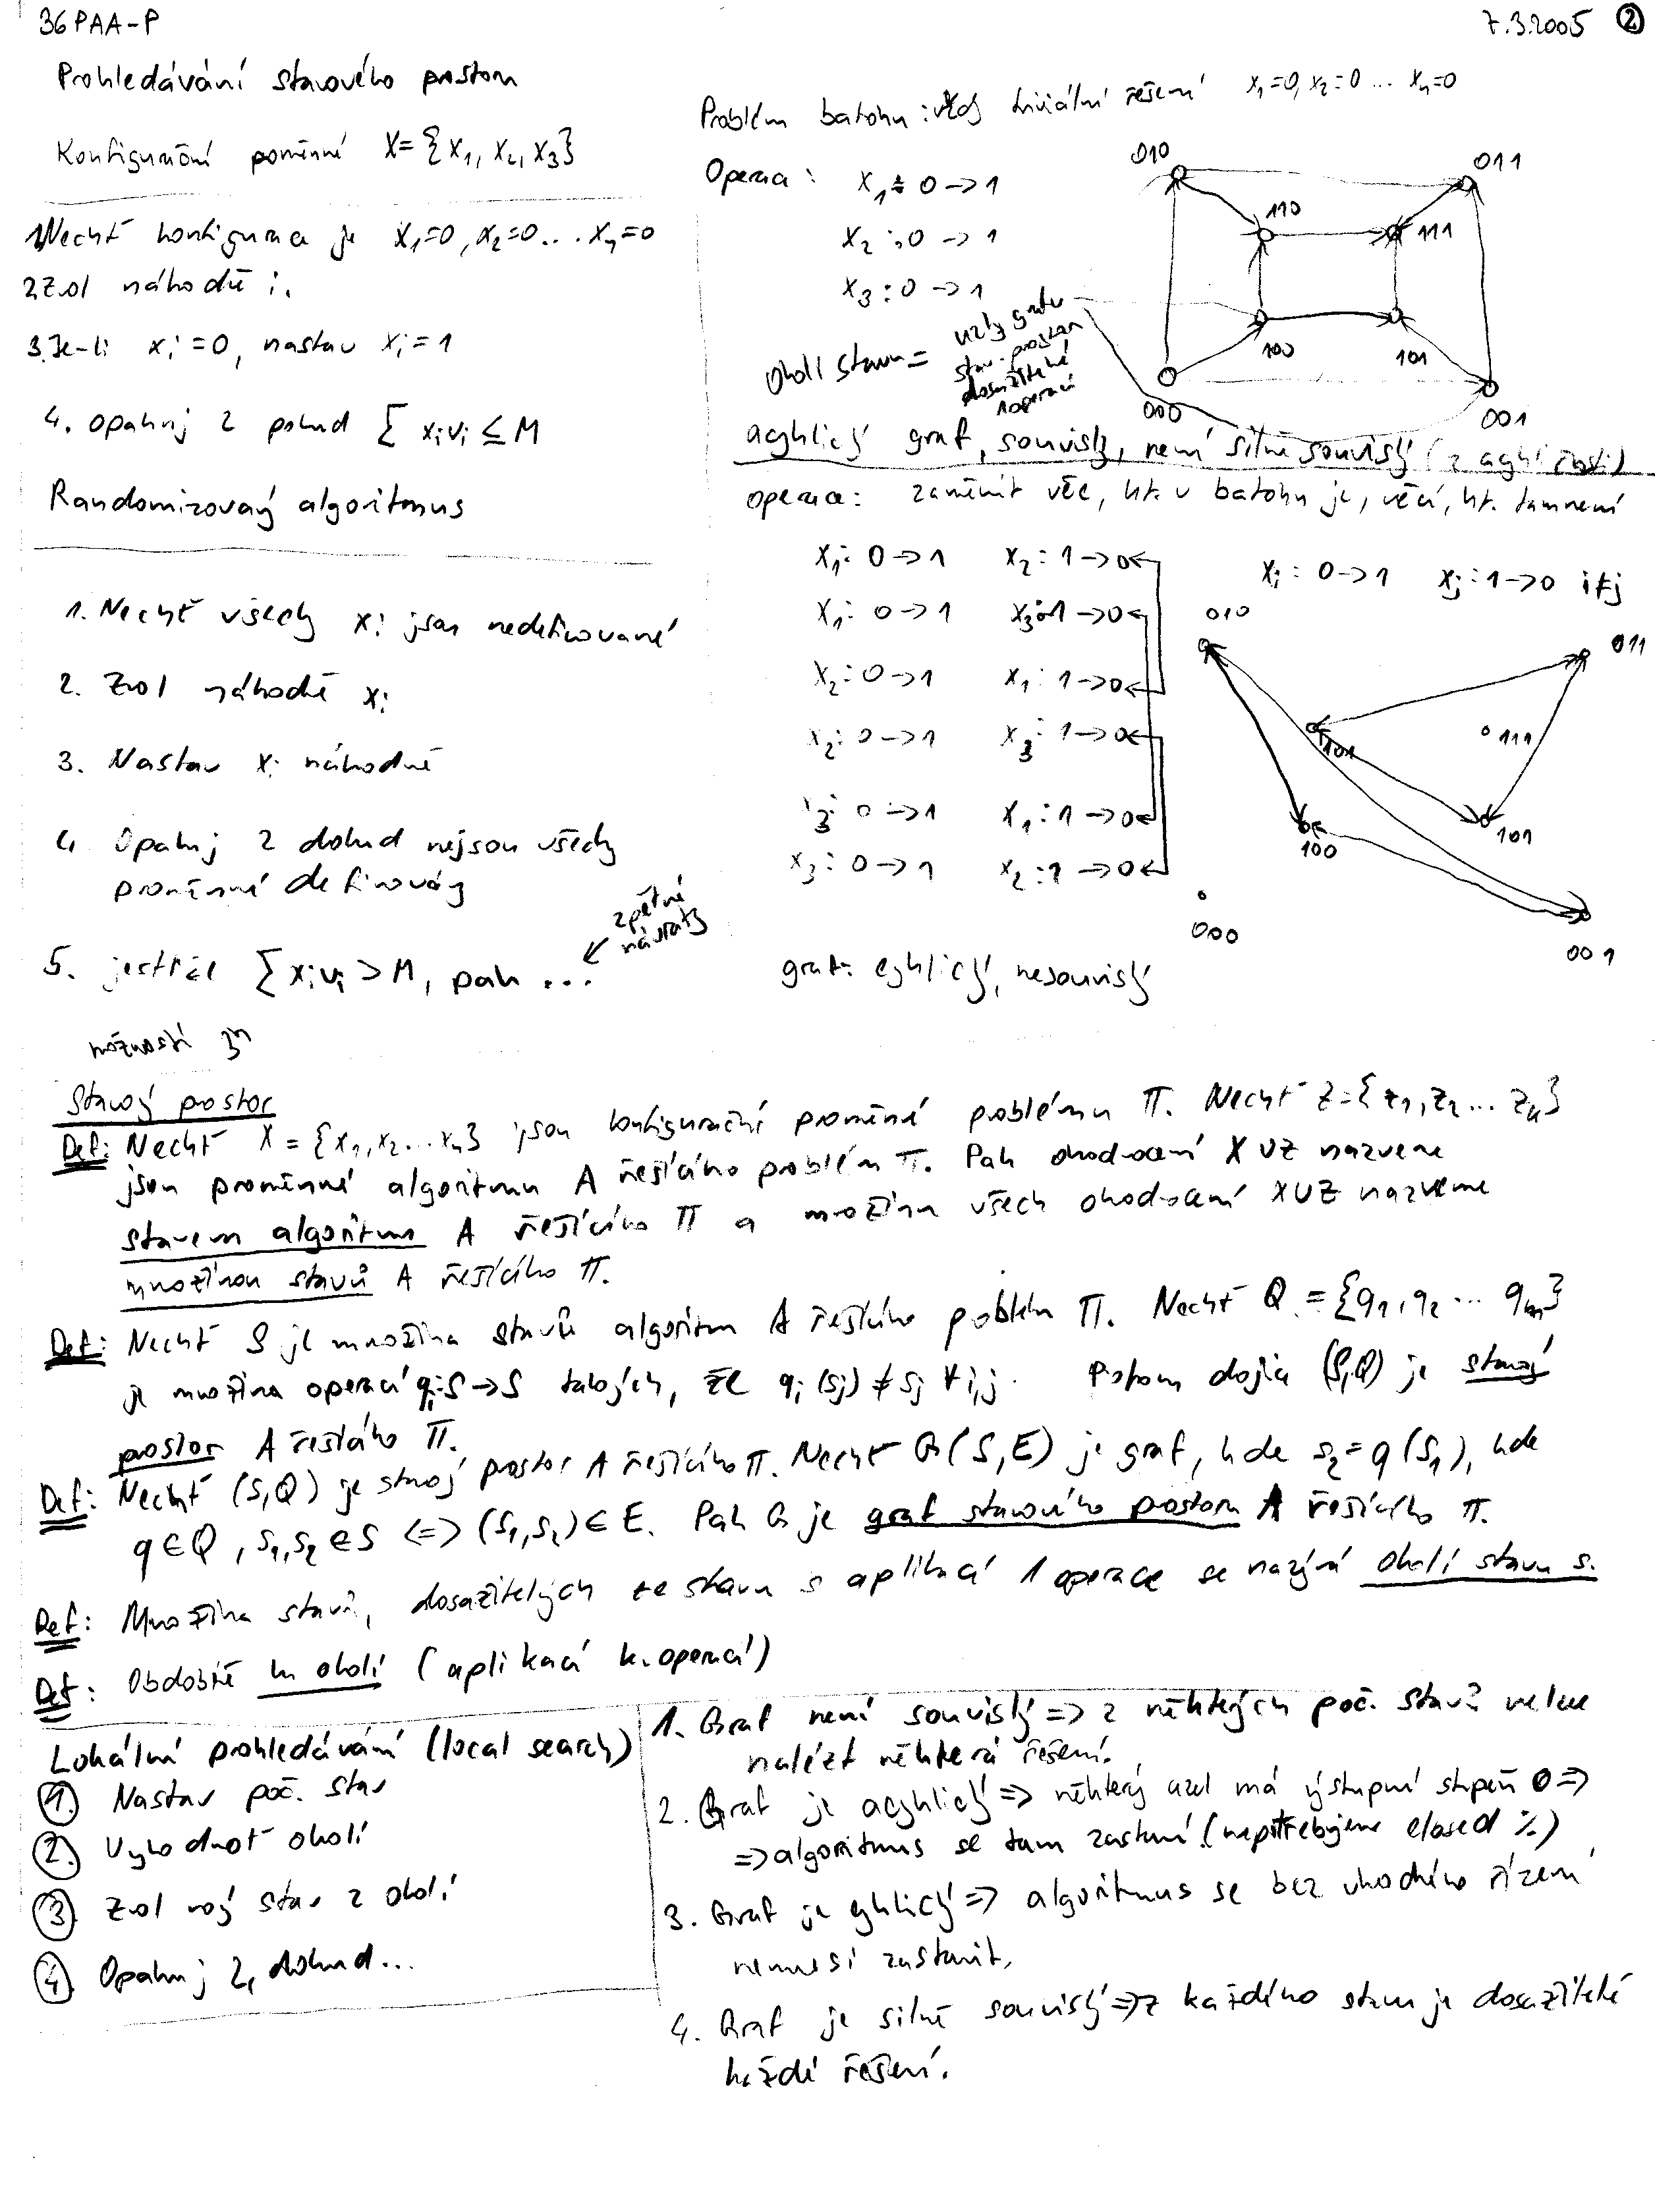 36PAA-P
7.3.2005 ②
Prohledávání stavového prostoru
Konfigurační proměnné X = {x₁, x₂, x₃}
1. Nechť konfigurace je x₁=0, x₂=0 ... xₙ=0
2. Zvol náhodně i.
3. Je-li xᵢ = 0, nastav xᵢ = 1
4. Opakuj 2 pokud Σ xᵢvᵢ ≤ M
Randomizovaný algoritmus
1. Nechť všechy xᵢ jsou nedefinované
2. Zvol náhodně xᵢ
3. Nastav xᵢ náhodně
4. Opakuj 2 dokud nejsou všechy
proměnné definovány
5. jestliže Σ xᵢvᵢ > M, pak ...
← zpětné
návraty
možností 3ⁿ
Problém batohu: vždy triviální řešení x₁=0, x₂=0 ... xₙ=0
Operace: x₁: 0 -> 1
x₂: 0 -> 1
x₃: 0 -> 1
okolí stavu =
uzly grafu
stav. prostoru
dosažitelné
1 operací
010
011
110
111
100
101
000
001
acyklický graf, souvislý, není silně souvislý (z acykličnosti)
operace: zaměnit věc, kt. v batohu je, věcí, kt. tam není
x₁: 0 -> 1 x₂: 1 -> 0
x₁: 0 -> 1 x₃: 1 -> 0
x₂: 0 -> 1 x₁: 1 -> 0
x₂: 0 -> 1 x₃: 1 -> 0
x₃: 0 -> 1 x₁: 1 -> 0
x₃: 0 -> 1 x₂: 1 -> 0
xᵢ: 0 -> 1 xⱼ: 1 -> 0 i≠j
010
011
111
101
100
000
001
graf: cyklický, nesouvislý
Stavový prostor
Def: Nechť X = {x₁, x₂ ... xₙ} jsou konfigurační proměnné problému Π. Nechť Z = {z₁, z₂ ... zₙ}
jsou proměnné algoritmu A řešícího problém Π. Pak ohodnocení X ∪ Z nazveme
stavem algoritmu A řešícího Π a množinu všech ohodnocení X ∪ Z nazveme
množinou stavů A řešícího Π.
Def: Nechť S je množina stavů algoritmu A řešícího problém Π. Nechť Q = {q₁, q₂ ... qₘ}
je množina operací qᵢ: S -> S takových, že qᵢ(sⱼ) ≠ sⱼ ∀i,j. Potom dojice (S,Q) je stavový
prostor A řešícího Π.
Def: Nechť (S,Q) je stavový prostor A řešícího Π. Nechť G(S,E) je graf, kde s₂ = q(s₁), kde
q ∈ Q, s₁, s₂ ∈ S <=> (s₁, s₂) ∈ E. Pak G je graf stavového prostoru A řešícího Π.
Def: Množina stavů, dosažitelných ze stavu s aplikací 1 operace se nazývá okolí stavu s.
Def: Obdobně k-okolí (aplikací k. operací)
Lokální prohledávání (local search)
① Nastav poč. stav
② Vyhodnoť okolí
③ Zvol nový stav z okolí
④ Opakuj 2, dokud...
1. Graf není souvislý => z některých poč. stavů nelze
nalézt některá řešení.
2. Graf je acyklický => některý uzel má výstupní stupeň 0 =>
=> algoritmus se tam zastaví. (nepotřebujeme closed
3. Graf je cyklický => algoritmus se bez vhodného řízení
nemusí zastavit.
4. Graf je silně souvislý => z každého stavu je dosažitelé
každé řešení.